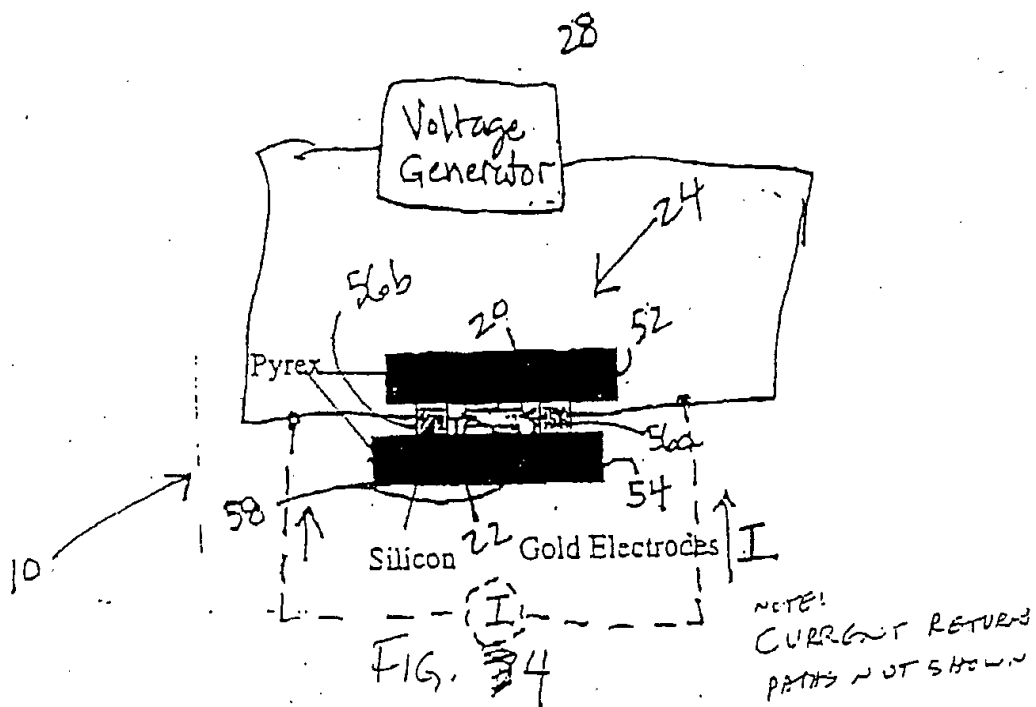 28
Voltage
Generator
24
56b
20
52
Pyrex
56a
54
58
22
Silicon
Gold Electrodes
I
10
I
FIG. 4
NOTE!
CURRENT RETURNS
PATHS NOT SHOWN